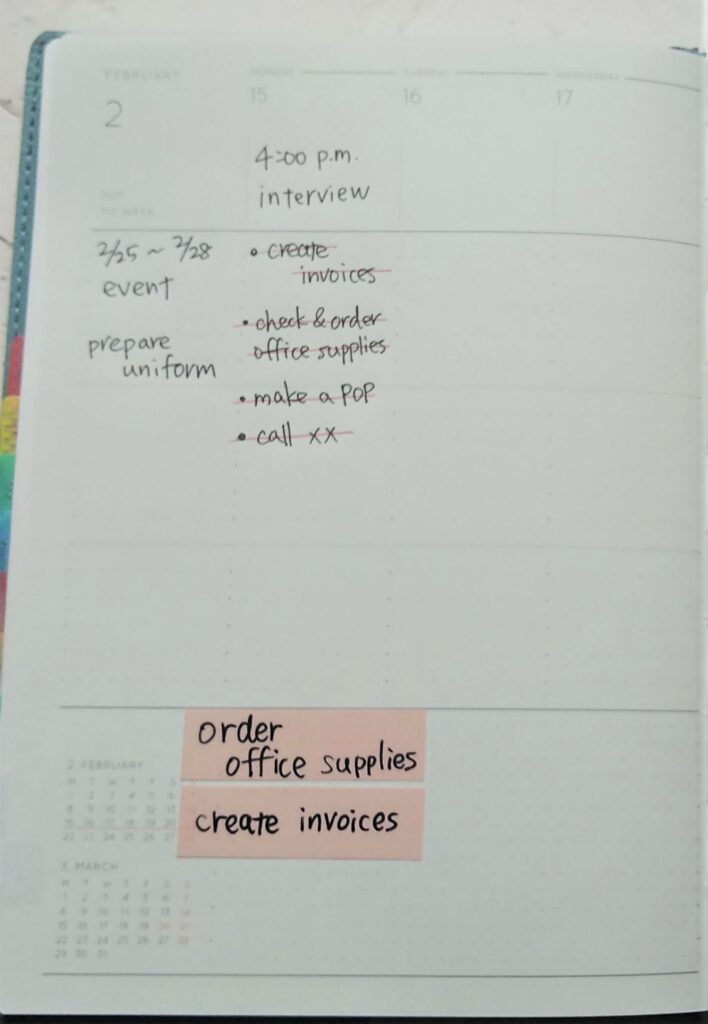 FEBRUARY
2
2021
MONDAY
15
TUESDAY
16
WEDNESDAY
17
4:00 p.m.
interview
2/25 ~ 2/28
event
prepare
uniform
• create
invoices
• check & order
office supplies
• make a POP
• call xx
order
office supplies
create invoices
2 FEBRUARY
M T W T F S
1 2 3 4 5 6
8 9 10 11 12 13
15 16 17 18 19 20
22 23 24 25 26 27
3 MARCH
M T W T F S S
1 2 3 4 5 6 7
8 9 10 11 12 13 14
15 16 17 18 19 20 21
22 23 24 25 26 27 28
29 30 31